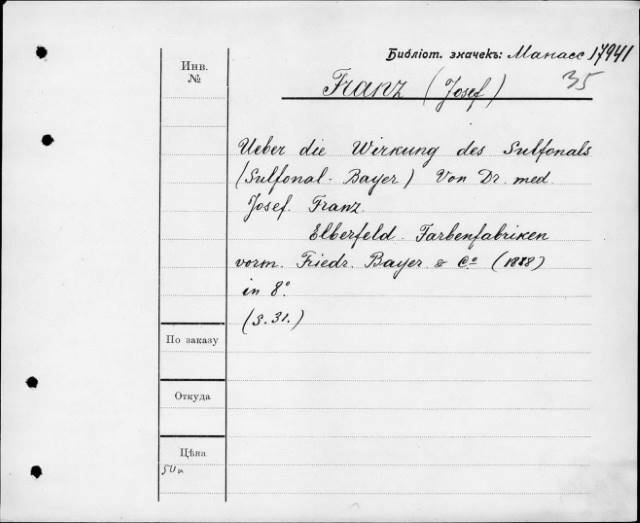 Библіот. значекъ: Манасс 17941
35
Инв.
№
Franz (Josef)
Ueber die Wirkung des Sulfonals
(Sulfonal-Bayer) Von Dr. med.
Josef. Franz.
Elberfeld. Farbenfabriken
vorm. Friedr. Bayer & Cº (1888)
in 8º.
(S. 31.)
По заказу
Откуда
Цѣна